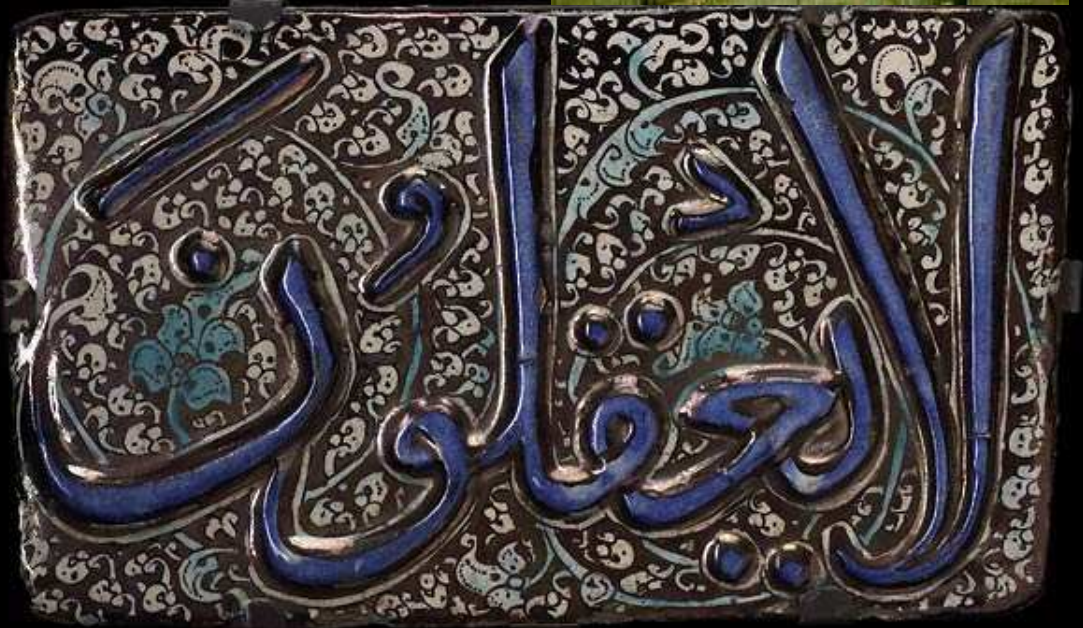 لا يعْقلُونَ